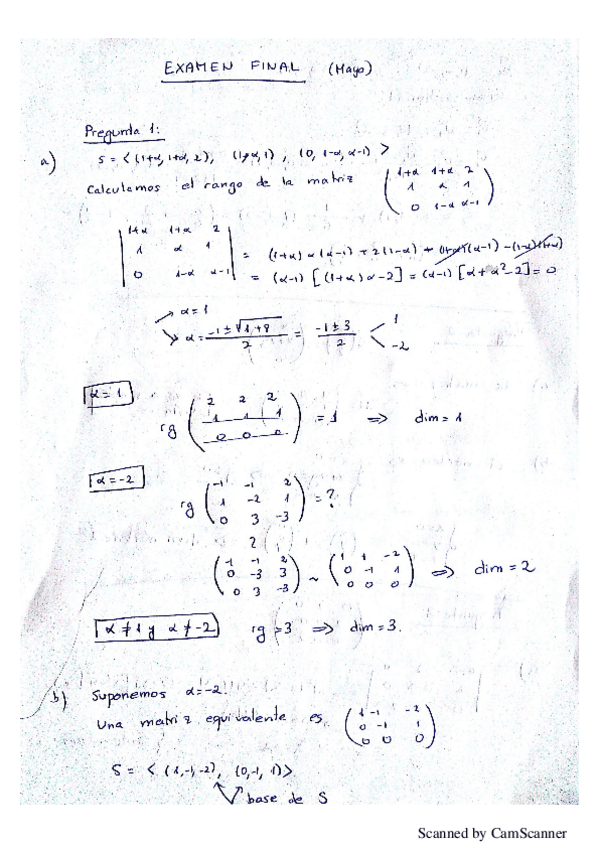 EXAMEN FINAL (Mayo)
Pregunta 1:
a) S = < (1+α, 1+α, 2), (1, α, 1), (0, 1-α, α-1) >
Calculamos el rango de la matriz ( 1+α 1+α 2
1 α 1
0 1-α α-1 )
| 1+α 1+α 2
1 α 1
0 1-α α-1 | = (1+α) α (α-1) + 2(1-α) + (1+α)(α-1) - (1-α)(1+α)
= (α-1) [(1+α)α-2] = (α-1) [α+α²-2] = 0
→ α = 1
↘ α = (-1 ± √1+8)/2 = (-1 ± 3)/2 < 1
-2
α = 1
rg ( 2 2 2
1 1 1
0 0 0 ) = 1 ⇒ dim = 1
α = -2
rg ( -1 -1 2
1 -2 1
0 3 -3 ) = ?
( -1 -1 2
0 -3 3
0 3 -3 ) ~ ( 1 1 -2
0 -1 1
0 0 0 ) ⇒ dim = 2
α ≠ 1 y α ≠ -2 rg = 3 ⇒ dim = 3.
b) Suponemos α = -2.
Una matriz equivalente es ( 1 -1 -2
0 -1 1
0 0 0 )
S = < (1,-1,-2), (0,-1, 1) >
base de S
Scanned by CamScanner